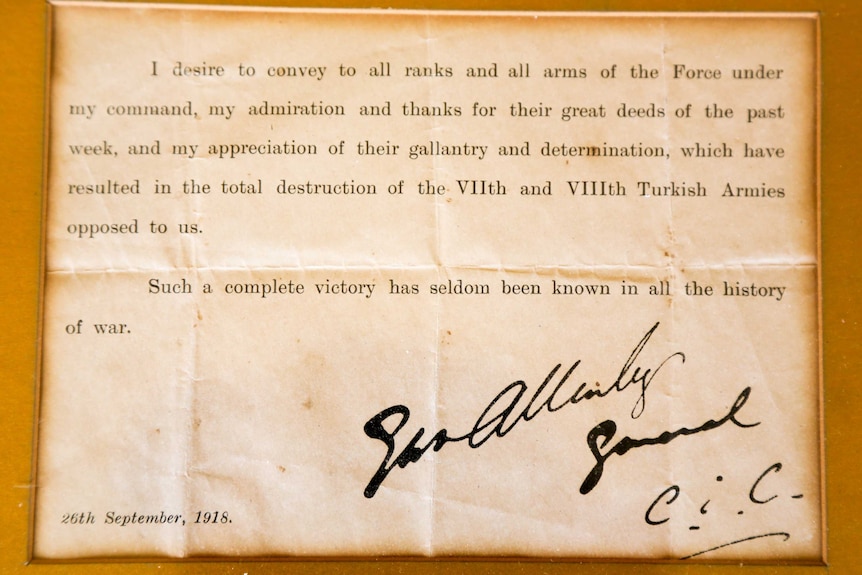 I desire to convey to all ranks and all arms of the Force under
my command, my admiration and thanks for their great deeds of the past
week, and my appreciation of their gallantry and determination, which have
resulted in the total destruction of the VIIth and VIIIth Turkish Armies
opposed to us.
Such a complete victory has seldom been known in all the history
of war.
Allenby
General
C.i.C.
26th September, 1918.